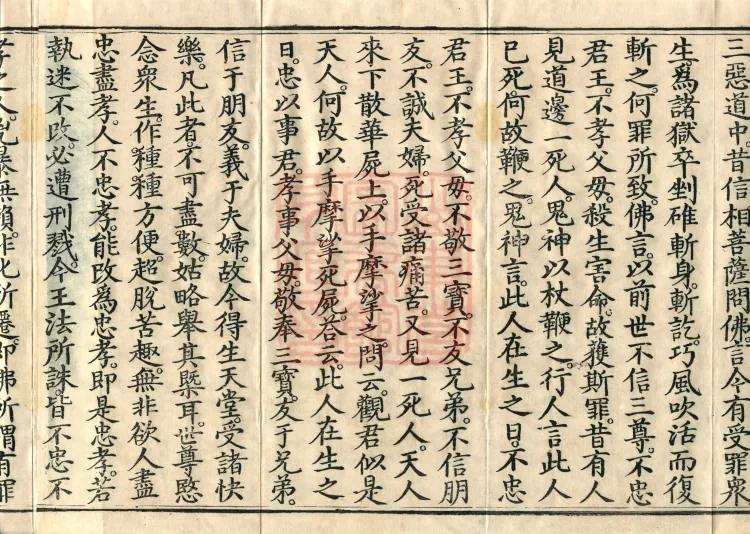 三惡道中。昔信相菩薩問佛。言今有受罪衆
生。爲諸獄卒剉碓斬身。斬訖。巧風吹活而復
斬之。何罪所致。佛言。以前世不信三尊。不忠
君王。不孝父毋。殺生害命。故獲斯罪。昔有人
見道邊一死人。鬼神以杖鞭之。行人言。此人
已死。何故鞭之。鬼神言。此人在生之日。不忠
君王。不孝父毋。不敬三寶。不友兄弟。不信朋
友。不誠夫婦。死受諸痛苦。又見一死人。天人
來下散華屍上。以手摩挲之。問云。觀君似是
天人。何故以手摩挲死屍。荅云。此人在生之
日。忠以事君。孝事父毋。敬奉三寶。友于兄弟。
信于朋友。義于夫婦。故今得生天堂。受諸快
樂。凡此者。不可盡數。姑略舉其槩耳。世尊愍
念衆生。作種種方便。超脫苦趣。無非欲人盡
忠盡孝。人不忠孝。能改爲忠孝。即是忠孝。若
執迷不改。必遭刑戮。今王法所誅。皆不忠不
孝之人。兇暴無賴。作此所遷。即佛所謂有罪